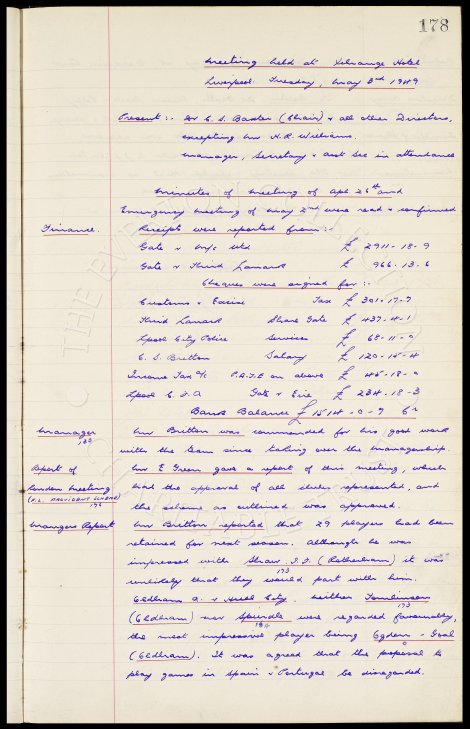 178
Meeting held at Exchange Hotel
Liverpool. Tuesday, May 3rd 1949
Present:- Dr C. S. Baxter (Chair) & all other Directors,
excepting Mr H.R Williams.
Manager, Secretary & asst Sec in attendance
Minutes of Meeting of Apl 26th and
Emergency meeting of May 2nd were read & confirmed
Finance. Receipts were reported from:-
Gate v M/c Utd £ 2911-18-9
Gate v Third Lanark £ 966-13-6
Cheques were signed for:-
Customs & Excise Tax £ 301-17-7
Third Lanark Share Gate £ 437-4-1
Lpool City Police Services £ 68-11-0
C. S. Britton Salary £ 120-15-4
Income Tax a/c P.A.Y.E on above £ 45-18-0
Lpool C.F.A Gate v Eire £ 234-18-3
Bank Balance £ 1514-0-9 Cr
Manager Mr Britton was commended for his good work
with the team since taking over the managership.
Report of Mr E Green gave a report of this meeting, which
London Meeting had the approval of all clubs represented, and
(F.L. PROVIDENT SCHEME) the scheme as outlined was approved.
176
Managers Report Mr Britton reported that 29 players had been
retained for next season. Although he was
impressed with Shaw. J.S. (Rotherham) it was
173
unlikely that they would part with him.
Oldham A. v Hull City. Neither Tomlinson
173
(Oldham) nor Spurdle were regarded favourably,
the most impressive player being Ogden - Goal
(Oldham). It was agreed that the proposal to
play games in Spain & Portugal be disregarded.
THE EVERTON